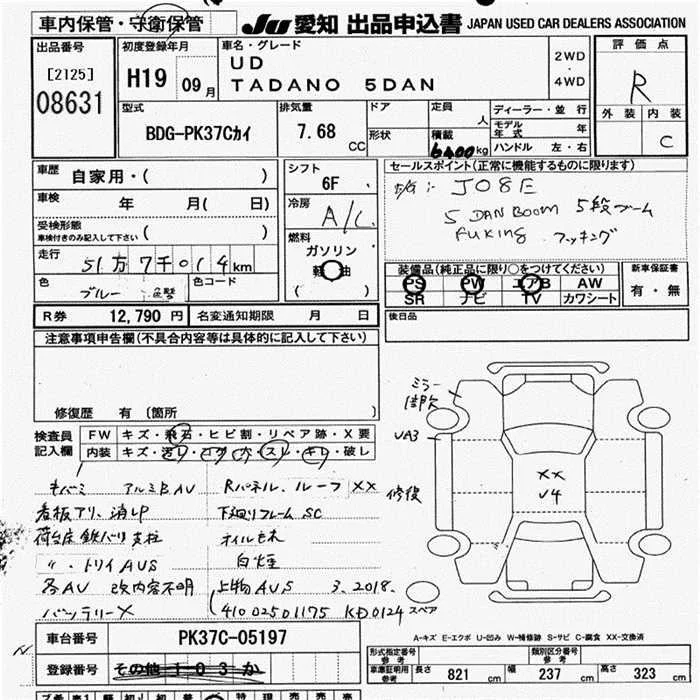 車内保管・守衛保管
JU 愛知 出品申込書 JAPAN USED CAR DEALERS ASSOCIATION
出品番号
[2125]
08631
初度登録年月
H19 09月
車名・グレード
UD
TADANO 5DAN
2WD
・
4WD
評価点
R
外装 内装
C
型式
BDG-PK37Cカイ
排気量
7.68
CC
ドア
形状
定員
人
積載
6400kg
ディーラー・並行
モデル年式 年
ハンドル 左・右
車歴
自家用・( )
車検 年 月( 日)
受検形態
車検付きのみ記入して下さい ( )
走行
51万7千014km
色
ブルー
色コード
シフト
6F
冷房
A/C
燃料
ガソリン
軽油
( )
セールスポイント(正常に機能するものに限ります)
J08E
5 DAN BOOM 5段ブーム
FUKING フッキング
装備品(純正品に限り○をつけてください)
PS PW エアB AW
SR ナビ TV カワシート
新車保証書
有・無
R券 12,790円 名変通知期限 月 日
後日品
注意事項申告欄(不具合内容等は具体的に記入して下さい)
修復歴 有 (箇所 )
検査員記入欄
FW キズ・飛石・ヒビ割・リペア跡・X要
内装 キズ・汚レ・コゲ・穴・スレ・キレ・破レ
アルミBAV Rパネル、ルーフ XX
看板アリ、消しP 下廻りフレームSC
荷台床鉄バリ支柱 オイルモレ
〃・トリイAUS 白煙
各AV 改内容不明 上物AUS 3.2018.
バッテリーX (4100250 1175 KD0124
ミラー
UA3
修復
XX
U4
スペア
車台番号 PK37C-05197
登録番号 その他103か
A-キズ E-エクボ U-凹み W-補修跡 S-サビ C-腐食 XX-交換済
形式指定番号
参考
類別区分番号
参考
車庫証明用参考 長さ 821 cm 幅 237 cm 高さ 323 cm